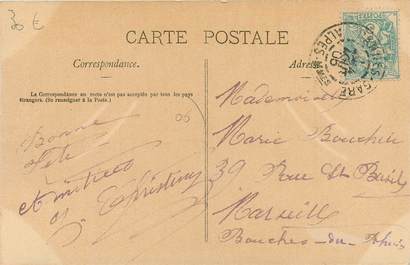 30 €
CARTE POSTALE
Correspondance.
Adresse
La Correspondance au recto n'est pas acceptée par tous les pays
étrangers. (Se renseigner à la Poste.)
CANNES-GARE
ALPES-MMES
06
Bonne
fête
et amitiés
Mademoiselle
Marie Bouchier
39 Rue St Basile
Marseille
Bouches-du-Rhône